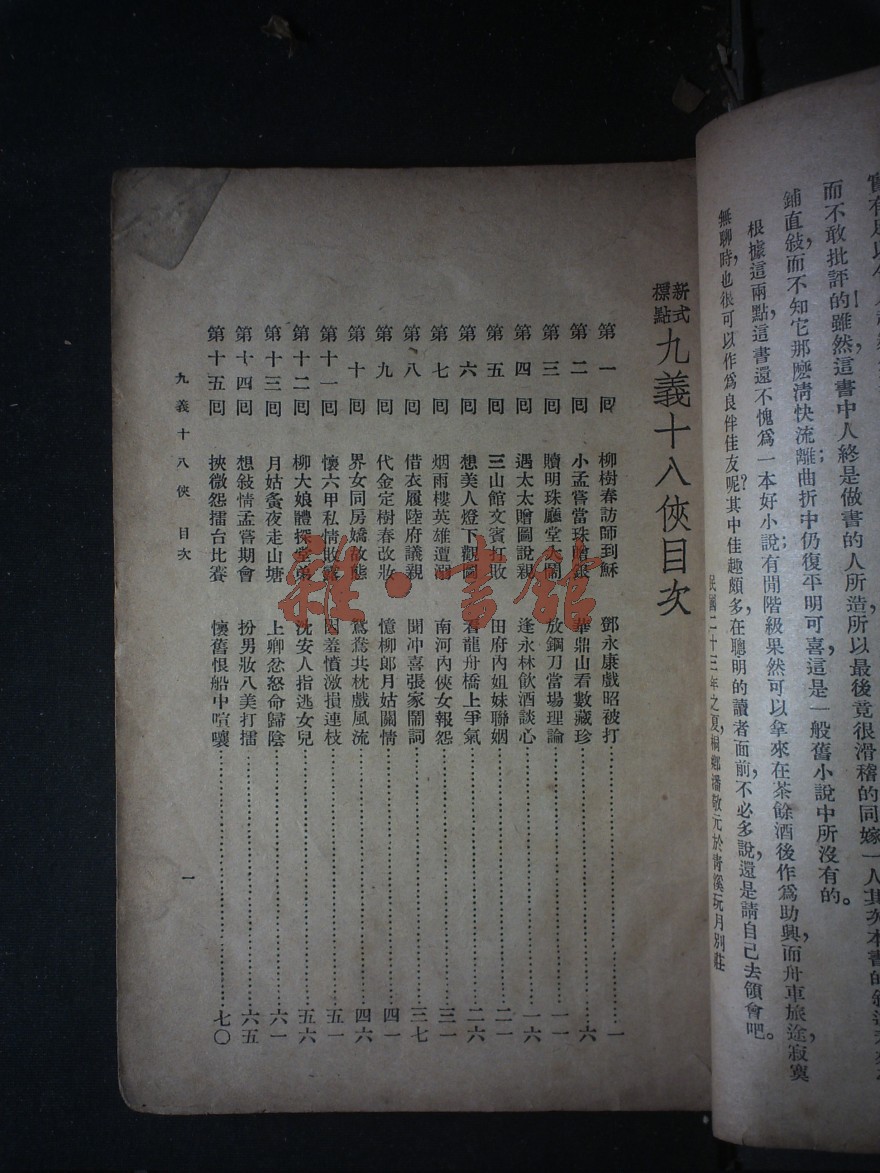 而不敢批評的!雖然這書中人終是做書的人所造,所以最後竟很滑稽的同嫁一人其次本書的敍述
鋪直敍,而不知它那麽清快流離;曲折中仍復平明可喜;這是一般舊小說中所沒有的。
根據這兩點,這書還不愧爲一本好小說;有閒階級果然可以拿來在茶餘酒後作爲助興,而舟車旅途,寂寞
無聊時,也很可以作爲良伴佳友呢?其中佳趣頗多,在聰明的讀者面前,不必多說,還是請自己去領會吧。
民國二十三年之夏,桐鄉潘敬元於青溪玩月別莊
新式標點 九義十八俠目次
第一回 柳樹春訪師到穌 鄧永康戲昭被打 一
第二回 小孟嘗當珠贈銀 華鼎山看數藏珍 六
第三回 贖明珠廳堂大鬧 放鋼刀當場理論 一一
第四回 遇太太贈圖說親 逢永林飲酒談心 一六
第五回 三山館文賓打敗 田府內姐妹聯姻 二一
第六回 想美人燈下觀圖 看龍舟橋上爭氣 二六
第七回 烟雨樓英雄遭溺 南河內俠女報怨 三一
第八回 借衣履陸府議親 聞冲喜張家鬧詞 三七
第九回 代金定樹春改妝 憶柳郎月姑關情 四一
第十回 界女同房嬌故態 鴛鴦共枕戲風流 四六
第十一回 懷六甲私情敗露 因羞憤激損連枝 五一
第十二回 柳大娘體探堂弟 沈安人指逃女兒 五六
第十三回 月姑夤夜走山塘 上卿忿怒命歸陰 六一
第十四回 想敍情孟嘗期會 扮男妝八美打擂 六五
第十五回 挾微怨擂台比賽 懷舊恨船中喧嚷 七〇
九義十八俠 目次
一
雜·書館